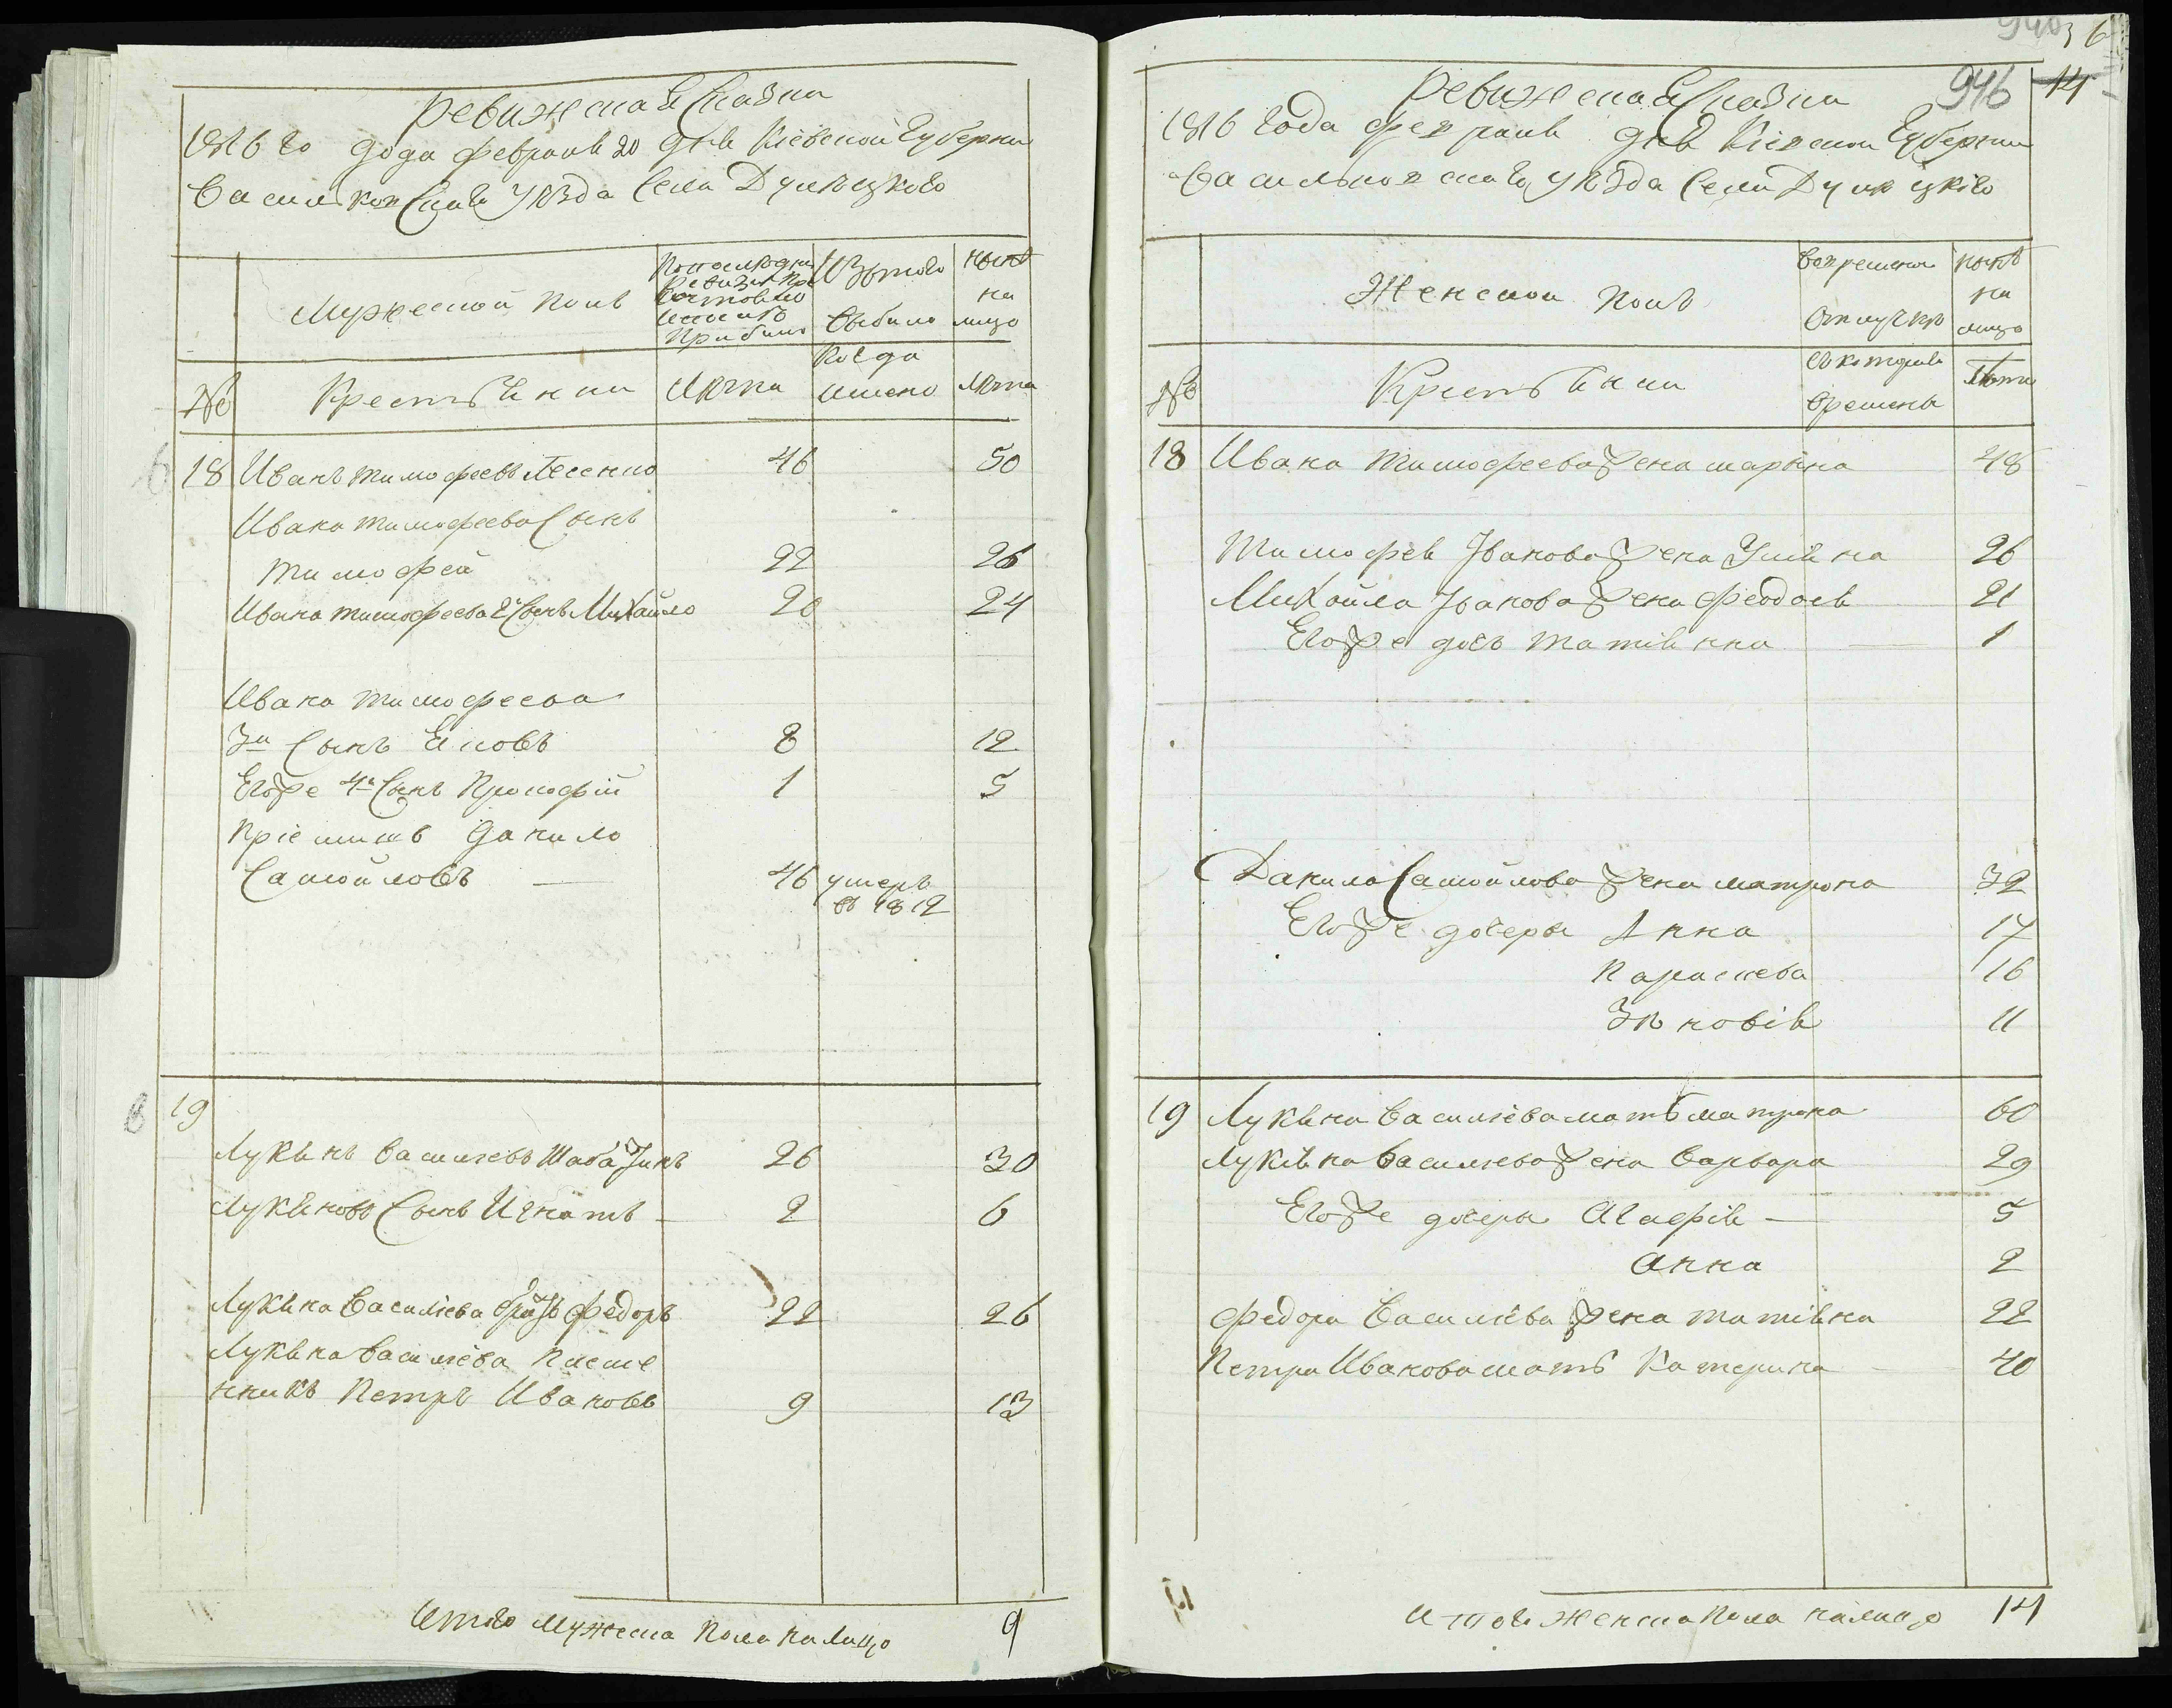 Ревижская Сказка
1816 го года февраля 20 дня Кіевской Губерніи
Васильковскаго уѣзда Села Дулѣцкого
Мужеской полъ
По последней
Ревизіи
состояло
и после
прибыло
Изъ того
выбыло
ныне
на
лицо
№
Крестьяни
Лѣта
Когда
имено
Лѣта
18 Иванъ Тимофеевъ Лесенко 46 50
Ивана Тимофеева Сынъ
Тимофей 22 26
Ивана Тимофеева 2 Сынъ Михайло 20 24
Ивана Тимофеева
3й Сынъ Яковъ 8 12
Егоже 4й Сынъ Прокофій 1 5
Пріемишъ Данило
Самойловъ — 46 умеръ
въ 1812
19
Лукянъ Васильевъ 26 30
Лукянова Сынъ Игнатъ — 2 6
Лукяна Василіева братъ федоръ 22 26
Лукяна Василіева племе
нникъ Петръ Ивановъ 9 13
Итого мужеска пола на лицо 9
946
36
14
Ревижская Сказка
1816 года февраля дня Кіевской Губерніи
Васильковскаго уѣзда Села Дулѣцкого
Женской полъ
Вовремена
Отлучкѣ
ныне
на
лицо
№
Крестьянки
съ котораго
времены
Лѣта
18 Ивана Тимофеева жена Марына 48
Тимофея Іванова жена Уляна 26
Михайла Іванова жена Феодося 21
Егоже дочъ Татіянна — 1
Данила Самойлова жена Матрона 32
Егоже дочеры Анна 17
Параскева 16
Зѣновія 11
19 Лукяна Василіева мать Матрона 60
Лукіяна Василіева жена Варвара 29
Егоже дочеры Агафія — 5
Анна 2
Федора Василіева жена Татіяна 22
Петра Иванова мать Катерина — 40
Итого женска пола налицо 14